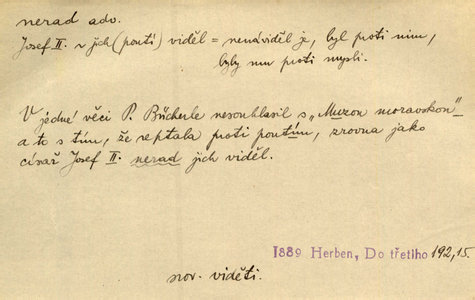 nerad adv.
Josef II. v jich (poutí) viděl = nenáviděl je, byl proti nim,
byly mu proti mysli.
V jedné věci P. Bücherle nesouhlasil s „Muzou moravskou“
a to s tím, že reptala proti poutím, zrovna jako
císař Josef II. nerad jich viděl.
1889 Herben, Do třetího 192,15.
srov. viděti.